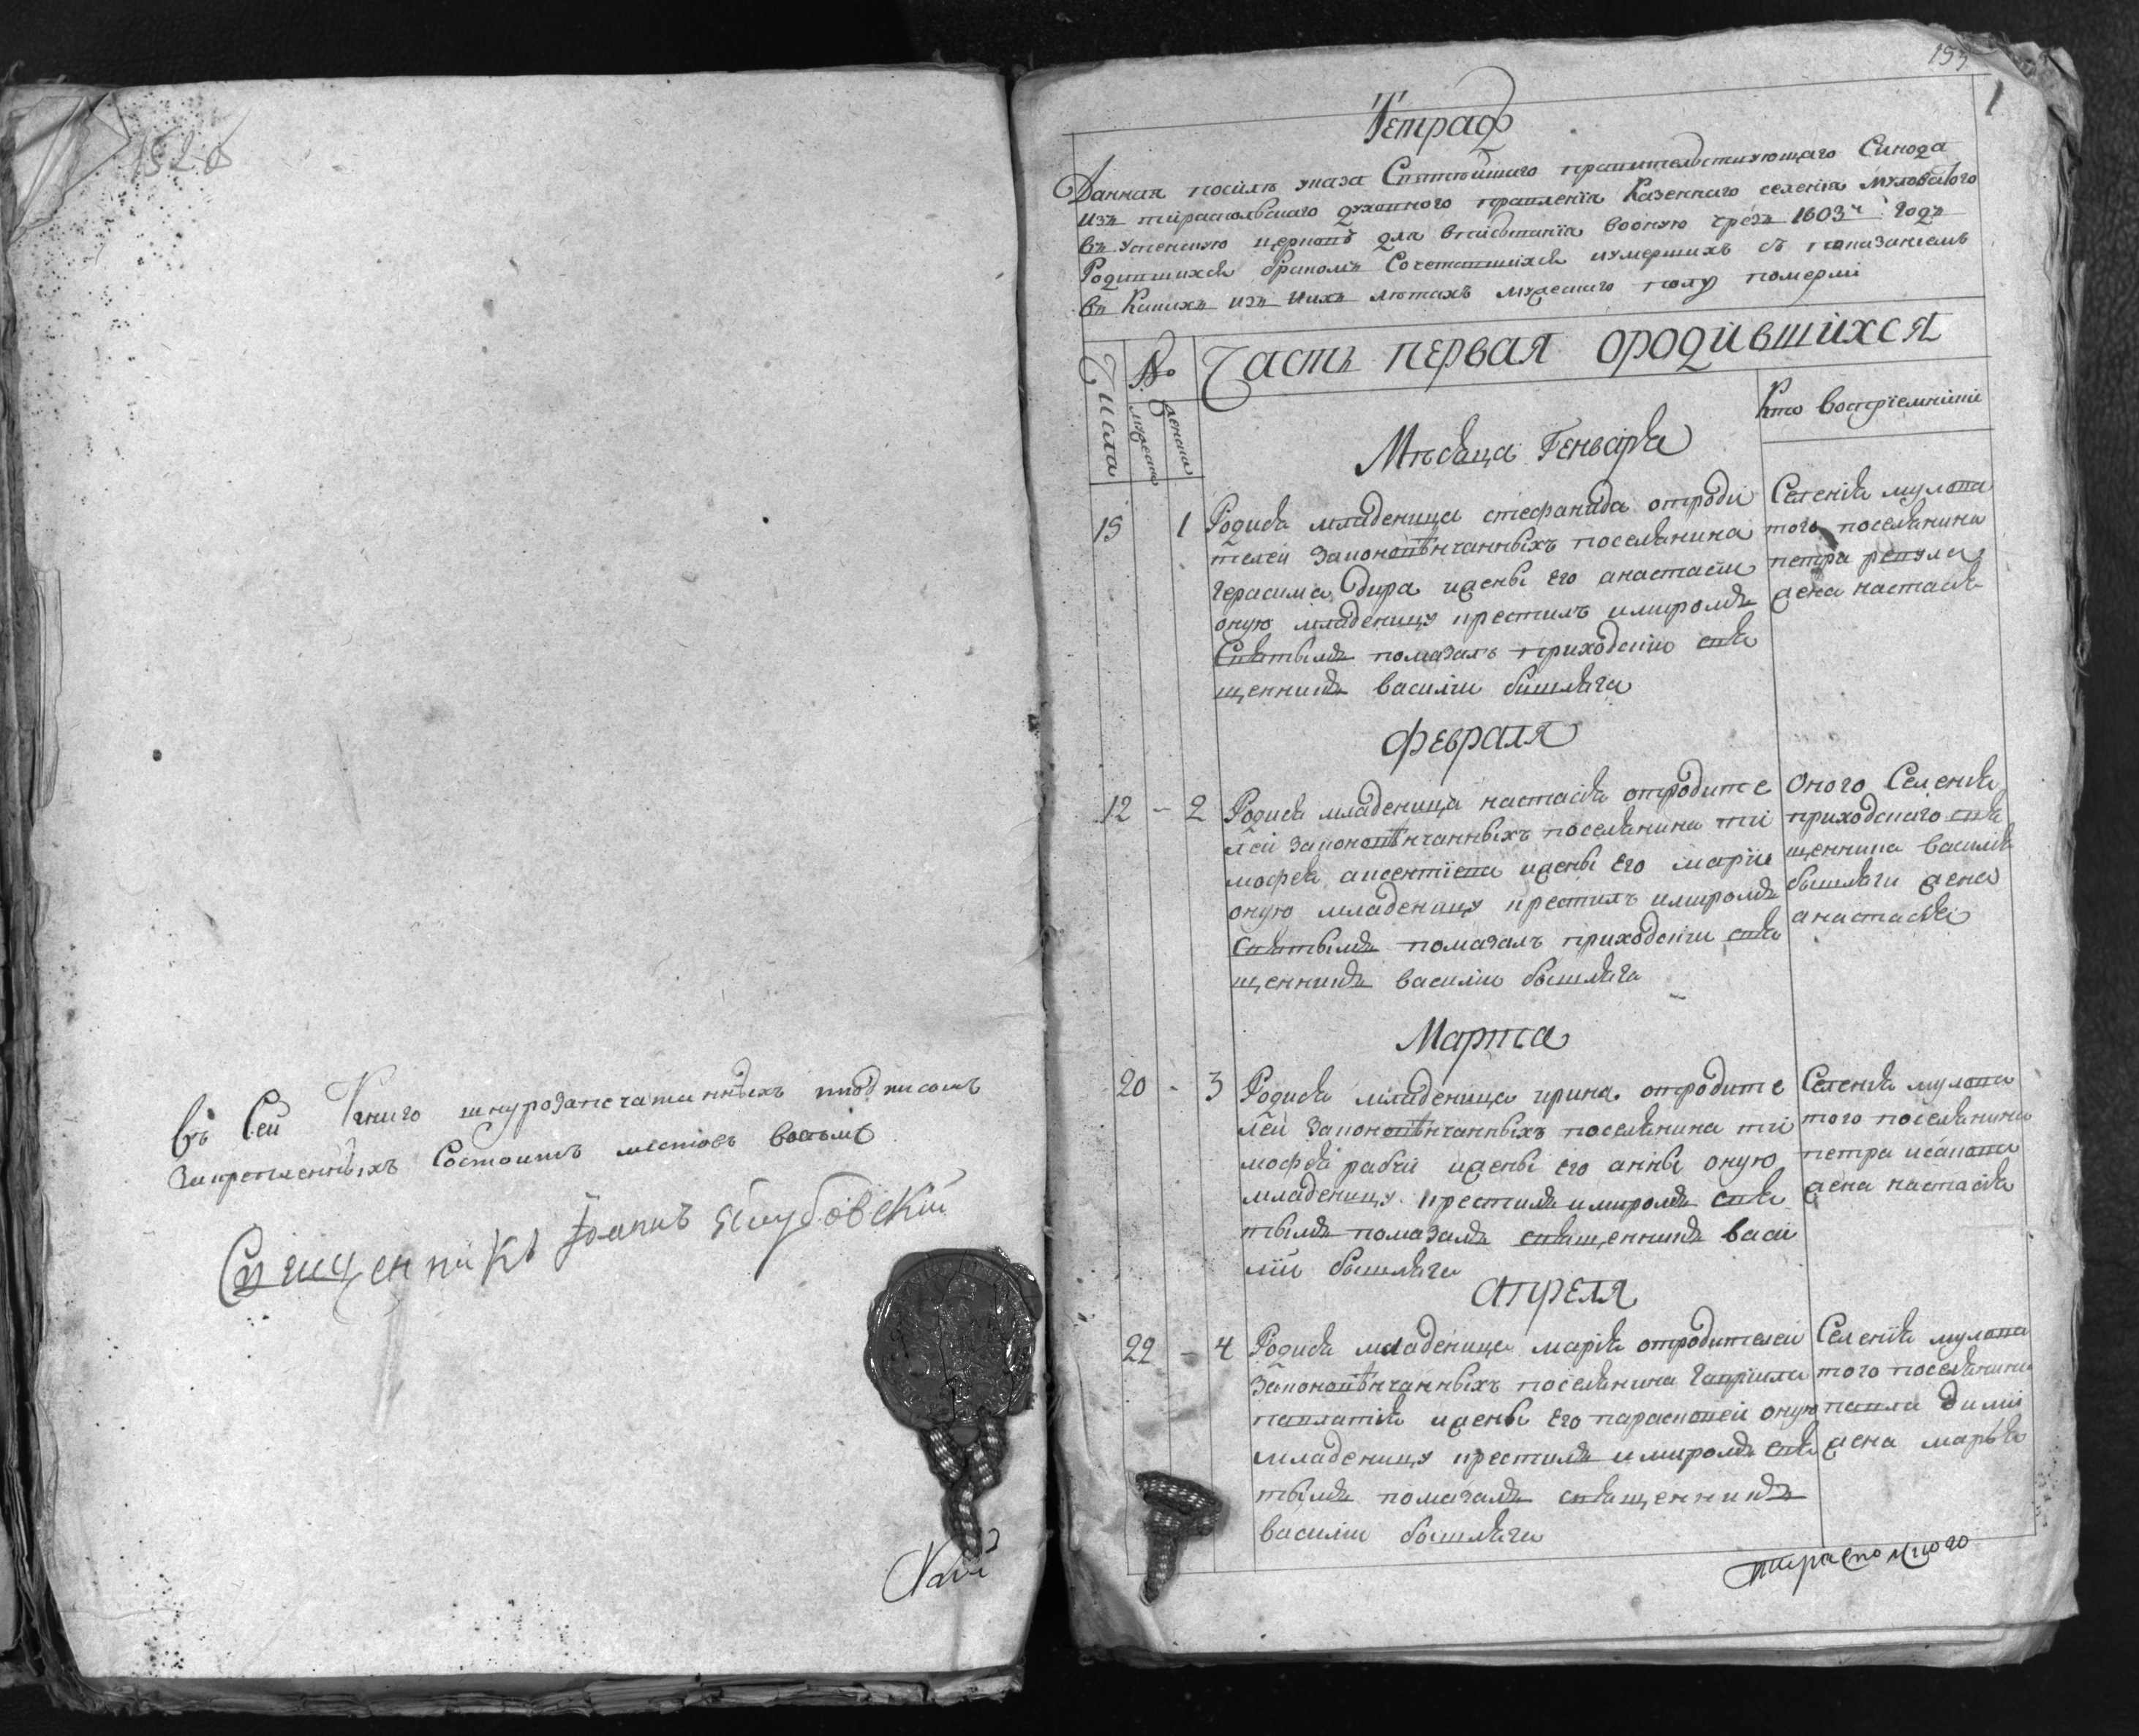 152 об
Въ Сей Книго шнурозапечатанныхъ подписомъ
закрепленныхъ Состоитъ местовъ восемъ
Священникъ Іоанъ Якубовскій
153
1
Тетрад
Данная посилѣ указа Святѣйшаго правителствующаго Синода
изъ тираспольскаго духовного правленія Казенного селенія муловатого
въ успенскую церковъ для вписыванія воокую чрезъ 1803й годъ
Родившихся бракомъ Сочетавшихся иумершихъ съ показаніемъ
въ Какихъ изъ нихъ лѣтахъ мужескаго полу померли
Числа
№
мужеска
женска
Часть первая ородившихся
Кто воспріемники
Мѣсяца Генваря
15 1 Родися младеница стефанида отроди
телей законовѣнчанныхъ поселянина
герасима дира ижены его анастасіи
оную младеницу крестилъ имиромъ
Святымъ помазалъ приходскій свя
щенникъ василіи бышляга
Селенія мулова
того поселянина
петра репула
жена настасія
февраля
12 - 2 Родися младеница настасія отродите
лей законовѣнчанныхъ поселянина ти
мофея аксентіева ижены его маріи
оную младеницу крестилъ имиромъ
святымъ помазалъ приходскіи свя
щенникъ василіи бышляга
Оного Селенія
приходскаго свя
щенника василія
бышляги жена
анастасія
Марта
20 - 3 Родися младеница ирина отродите
лей законовѣнчанныхъ поселянина ти
мофея рабіи ижены его анны оную
младеницу крестилъ имиромъ свя
тымъ помазалъ священникъ васи
ліи бышляга
Селенія мулова
того поселянина
петра исакова
жена настасія
апреля
22 - 4 Родися младеница марія отродителей
законовѣнчанныхъ поселянина гавриила
павлатія ижены его параскевеи оную
младеницу крестилъ имиромъ свя
тымъ помазалъ священникъ
василіи бышляга
Селенія мулова
того поселянина
павла димы
жена марья
тираспольского